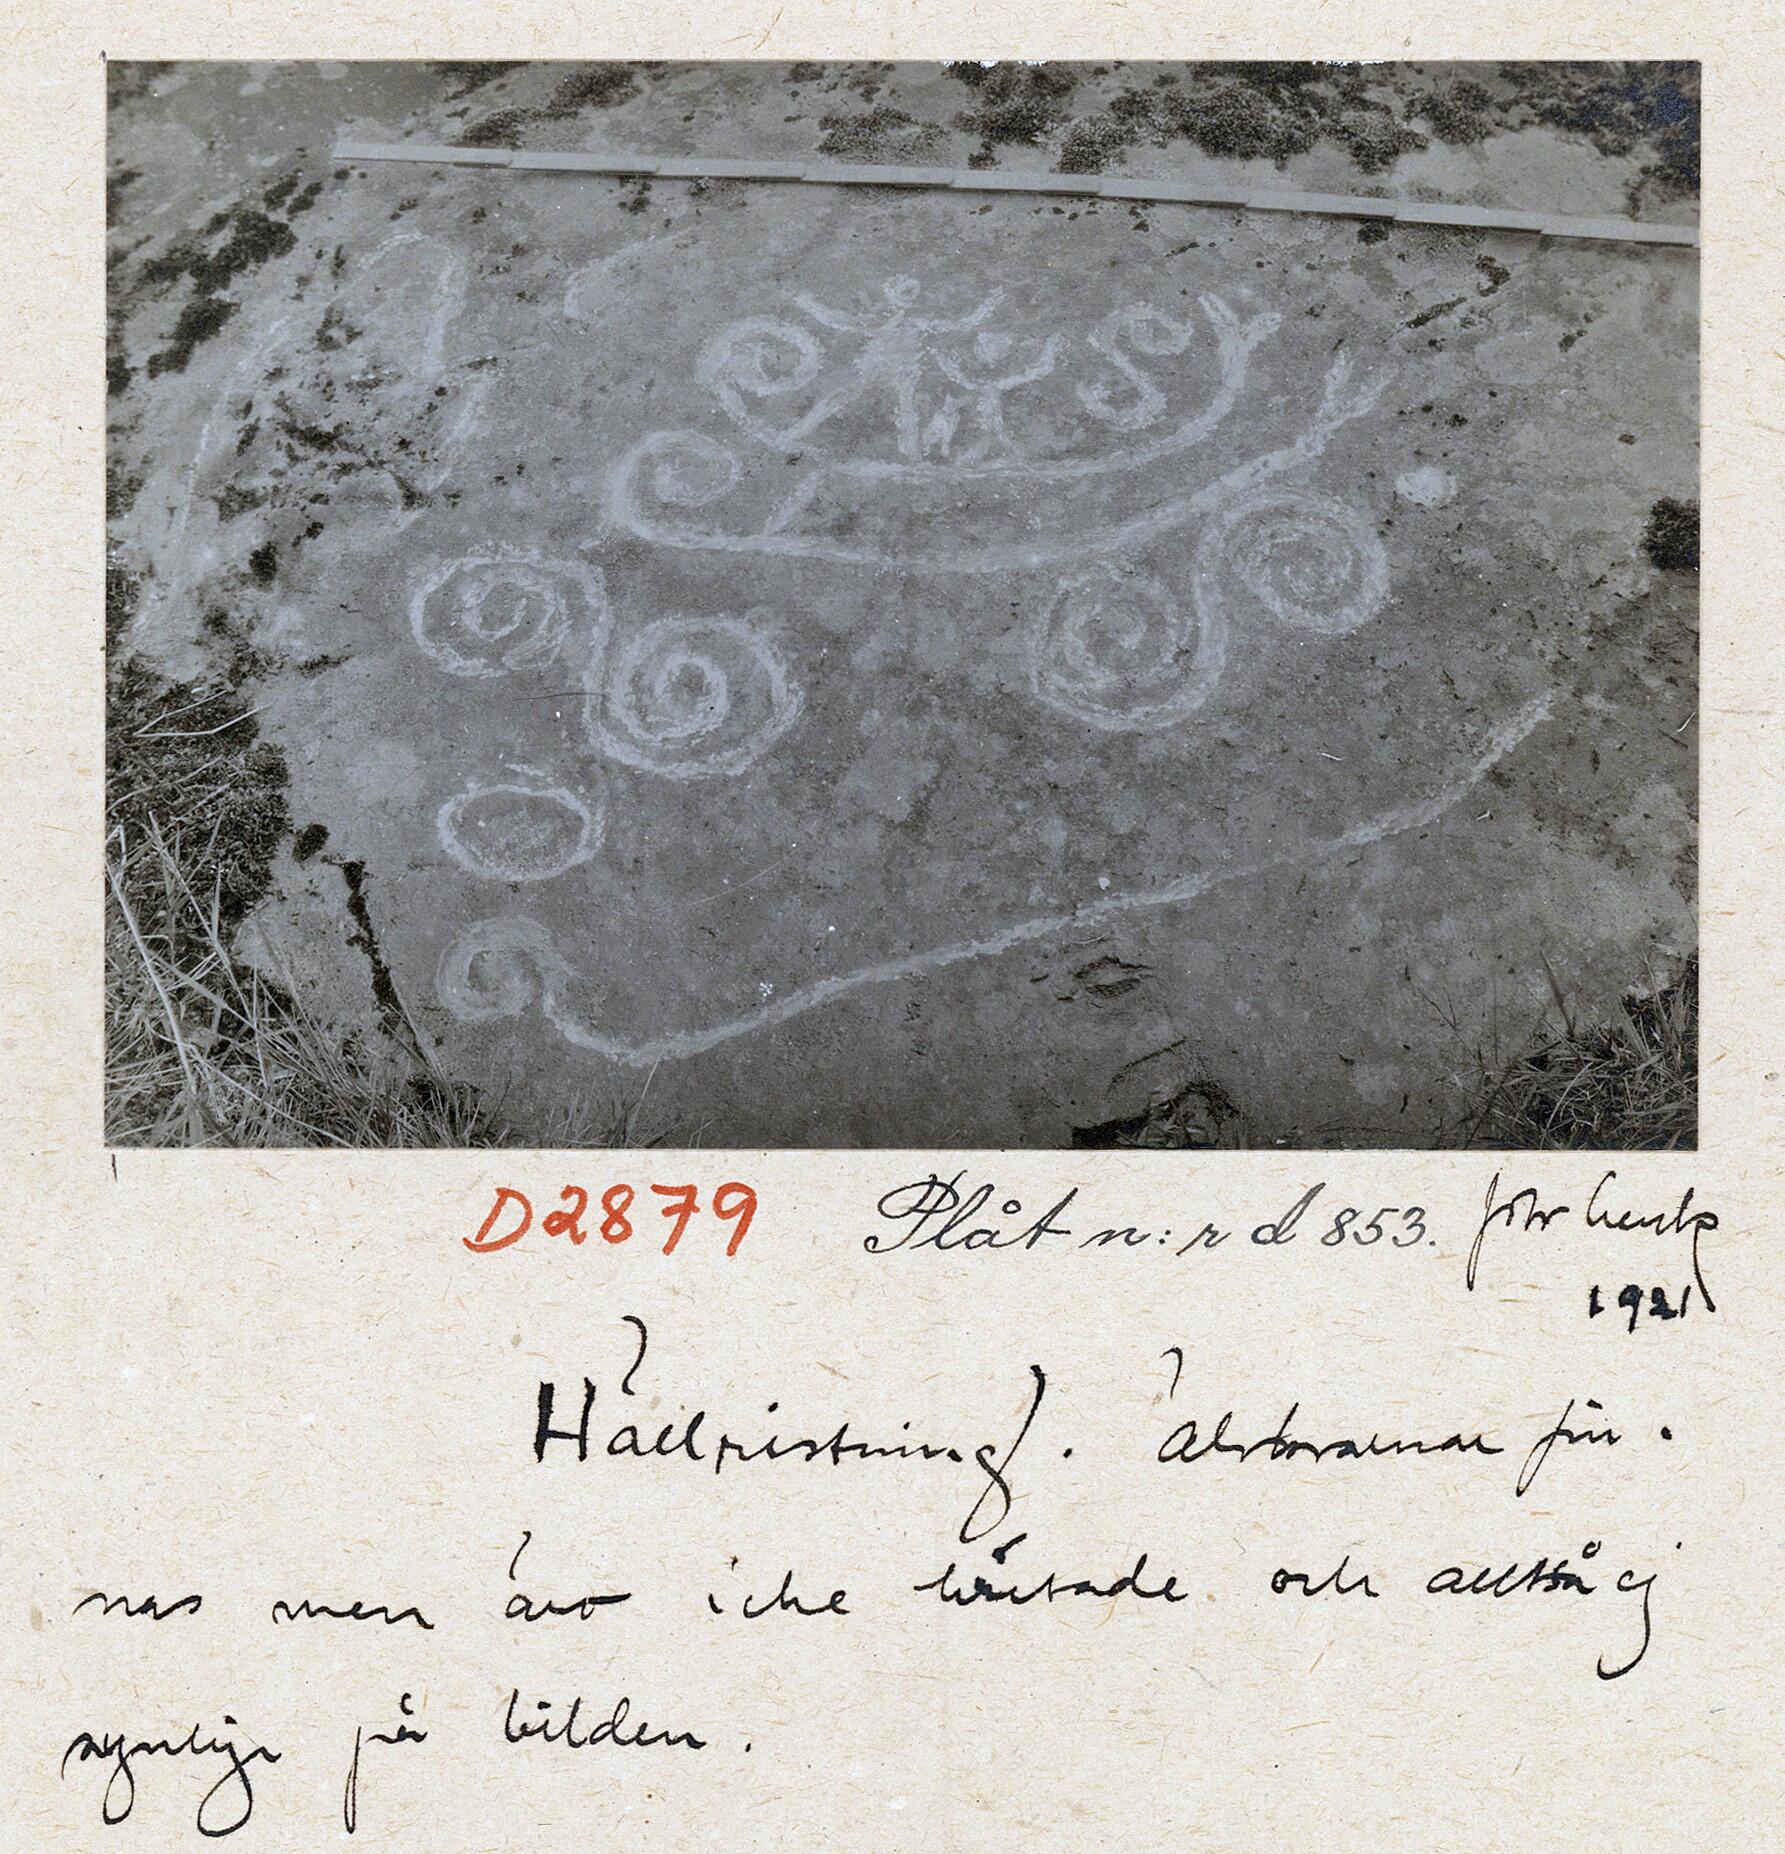 D2879 Plåt n:r d 853.
1921
Hällristning. Älvkvarnar fin-
nas men äro icke kritade och alltså ej
synliga på bilden.